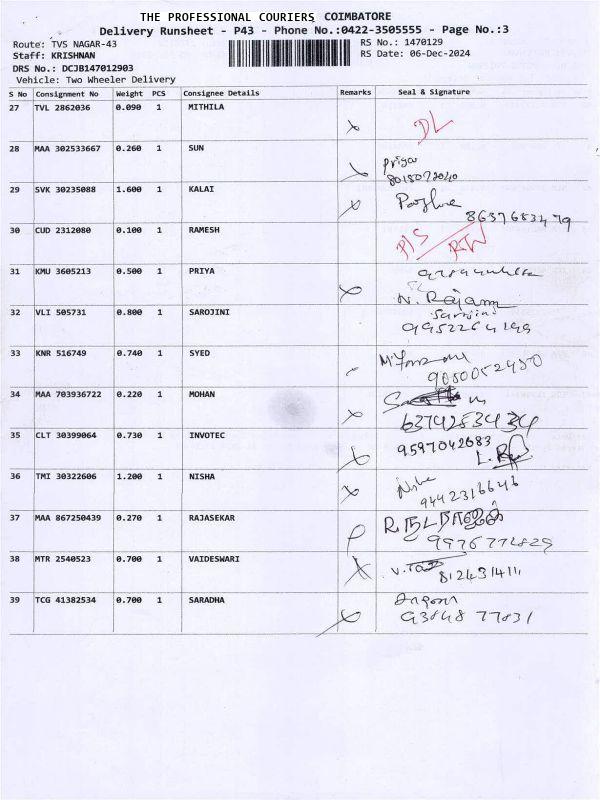 THE PROFESSIONAL COURIERS COIMBATORE
Delivery Runsheet - P43 - Phone No.:0422-3505555 - Page No.:3
Route: TVS NAGAR-43 RS No.: 1470129
Staff: KRISHNAN RS Date: 06-Dec-2024
DRS No.: DCJB147012903
Vehicle: Two Wheeler Delivery
S No Consignment No Weight PCS Consignee Details Remarks Seal & Signature
27 TVL 2862036 0.090 1 MITHILA DL
28 MAA 302533667 0.260 1 SUN Priya
8015072040
29 SVK 30235088 1.600 1 KALAI
8637683479
30 CUD 2312080 0.100 1 RAMESH
31 KMU 3605213 0.500 1 PRIYA
N. Rajam
32 VLI 505731 0.800 1 SAROJINI Sarojini
9952264199
33 KNR 516749 0.740 1 SYED
9080052450
34 MAA 703936722 0.220 1 MOHAN
6374283434
35 CLT 30399064 0.730 1 INVOTEC 9597042683
36 TMI 30322606 1.200 1 NISHA Nisha
9442316646
37 MAA 867250439 0.270 1 RAJASEKAR
9976772829
38 MTR 2540523 0.700 1 VAIDESWARI
8124314111
39 TCG 41382534 0.700 1 SARADHA
93848 77831